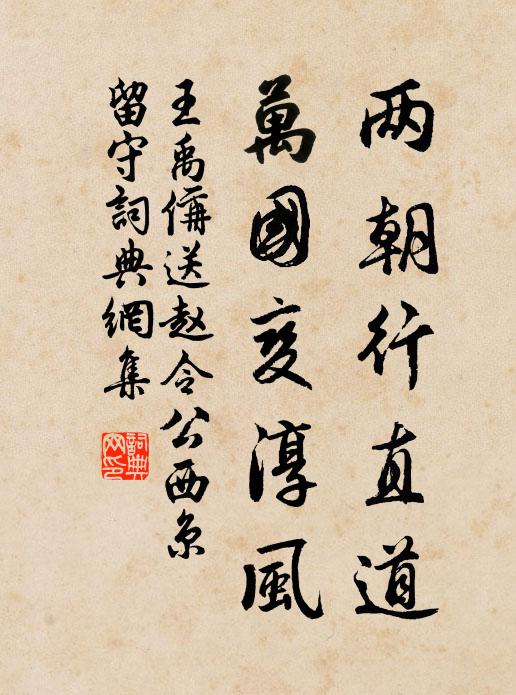 两朝行直道
萬國变淳風
王禹偁送赵令公西京
留守詞典網集
詞典網印